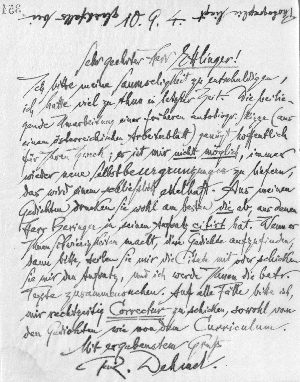 10.9.4.
Sehr geehrter Herr Ettlinger!
Ich bitte meine Saumseligkeit zu entschuldigen,
ich hatte viel zu thun in letzter Zeit. Die beilie-
gende Umarbeitung einer früheren autobiogr. Skizze (aus
einem österreichischen Arbeiterblatt) genügt hoffentlich
für Ihren Zweck; es ist mir nicht möglich, immer
wieder neue Selbstbeäugungen zu liefern,
das wird einem schließlich ekelhaft. Aus meinen
Gedichten drucken Sie wohl am besten die ab, aus denen
Herr in seinem Aufsatz citirt hat. Wenn es
Ihnen Schwierigkeiten macht, diese Gedichte aufzufinden,
dann bitte, teilen Sie mir die Titel mit oder schicken
Sie mir den Aufsatz, und ich werde Ihnen die betr.
Texte zusammensuchen. Auf alle Fälle bitte ich,
mir rechtzeitig Correctur zu schicken, sowohl von
den Gedichten wie von dem Curriculum.
Mit ergebenstem Gruß
R. Dehmel.